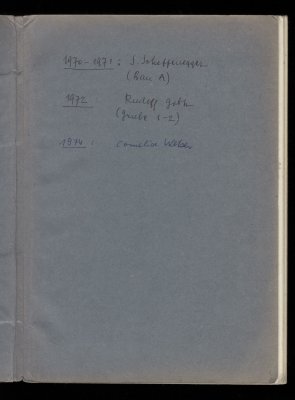 1970-1971: S. Scheffenegger
(Bau A)
1972 Rudolf
(Grube 1-2)
1974: Cornelia Weber